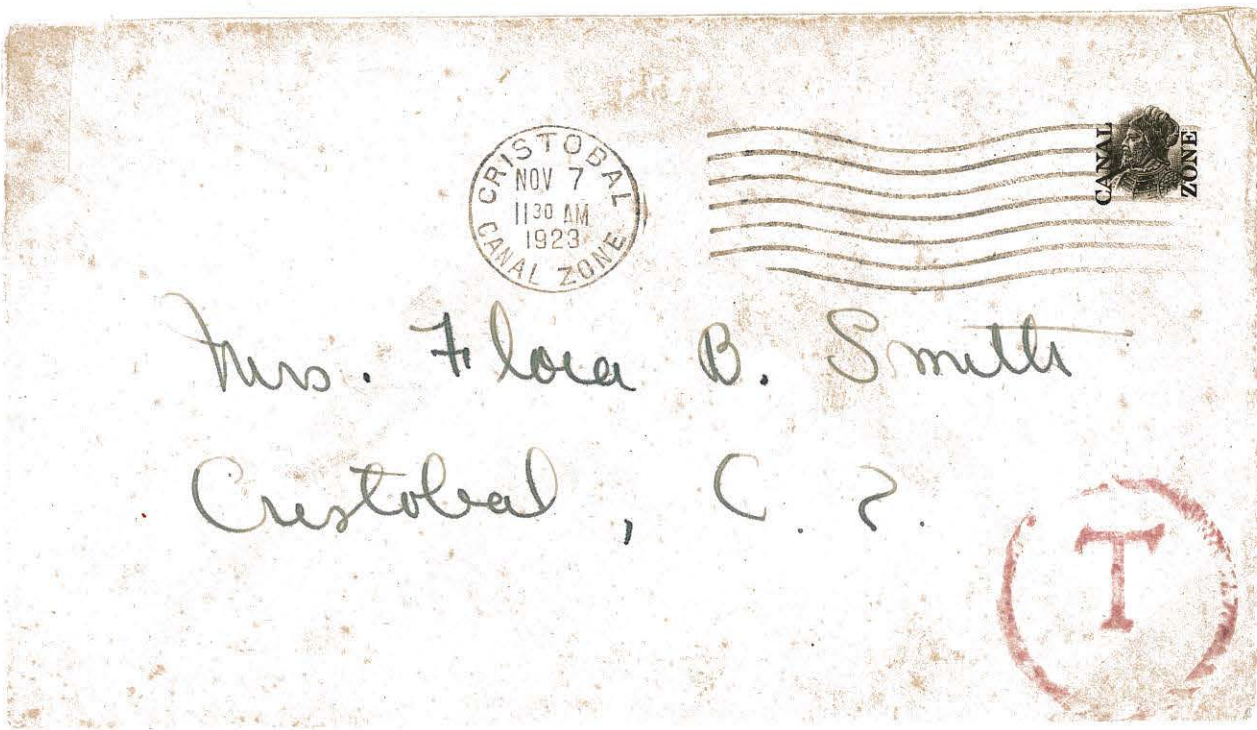 CRISTOBAL
NOV 7
11 30 AM
1923
CANAL ZONE
CANAL
ZONE
Mrs. Flora B. Smith
Cristobal, C. Z.
T